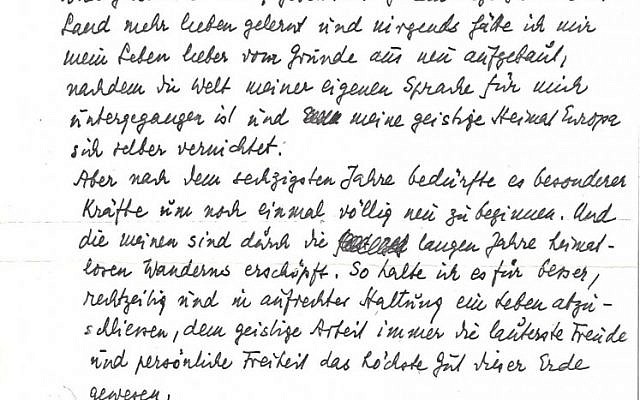 Land mehr lieben gelernt und nirgends hätte ich mir
mein Leben lieber vom Grunde aus neu aufgebaut,
nachdem die Welt meiner eigenen Sprache für mich
untergegangen ist und meine geistige Heimat Europa
sich selber vernichtet.
Aber nach dem sechzigsten Jahre bedürfte es besonderer
Kräfte um noch einmal völlig neu zu beginnen. Und
die meinen sind durch die langen Jahre heimat-
losen Wanderns erschöpft. So halte ich es für besser,
rechtzeitig und in aufrechter Haltung ein Leben abzu-
schliessen, dem geistige Arbeit immer die lauterste Freude
und persönliche Freiheit das höchste Gut dieser Erde
gewesen.